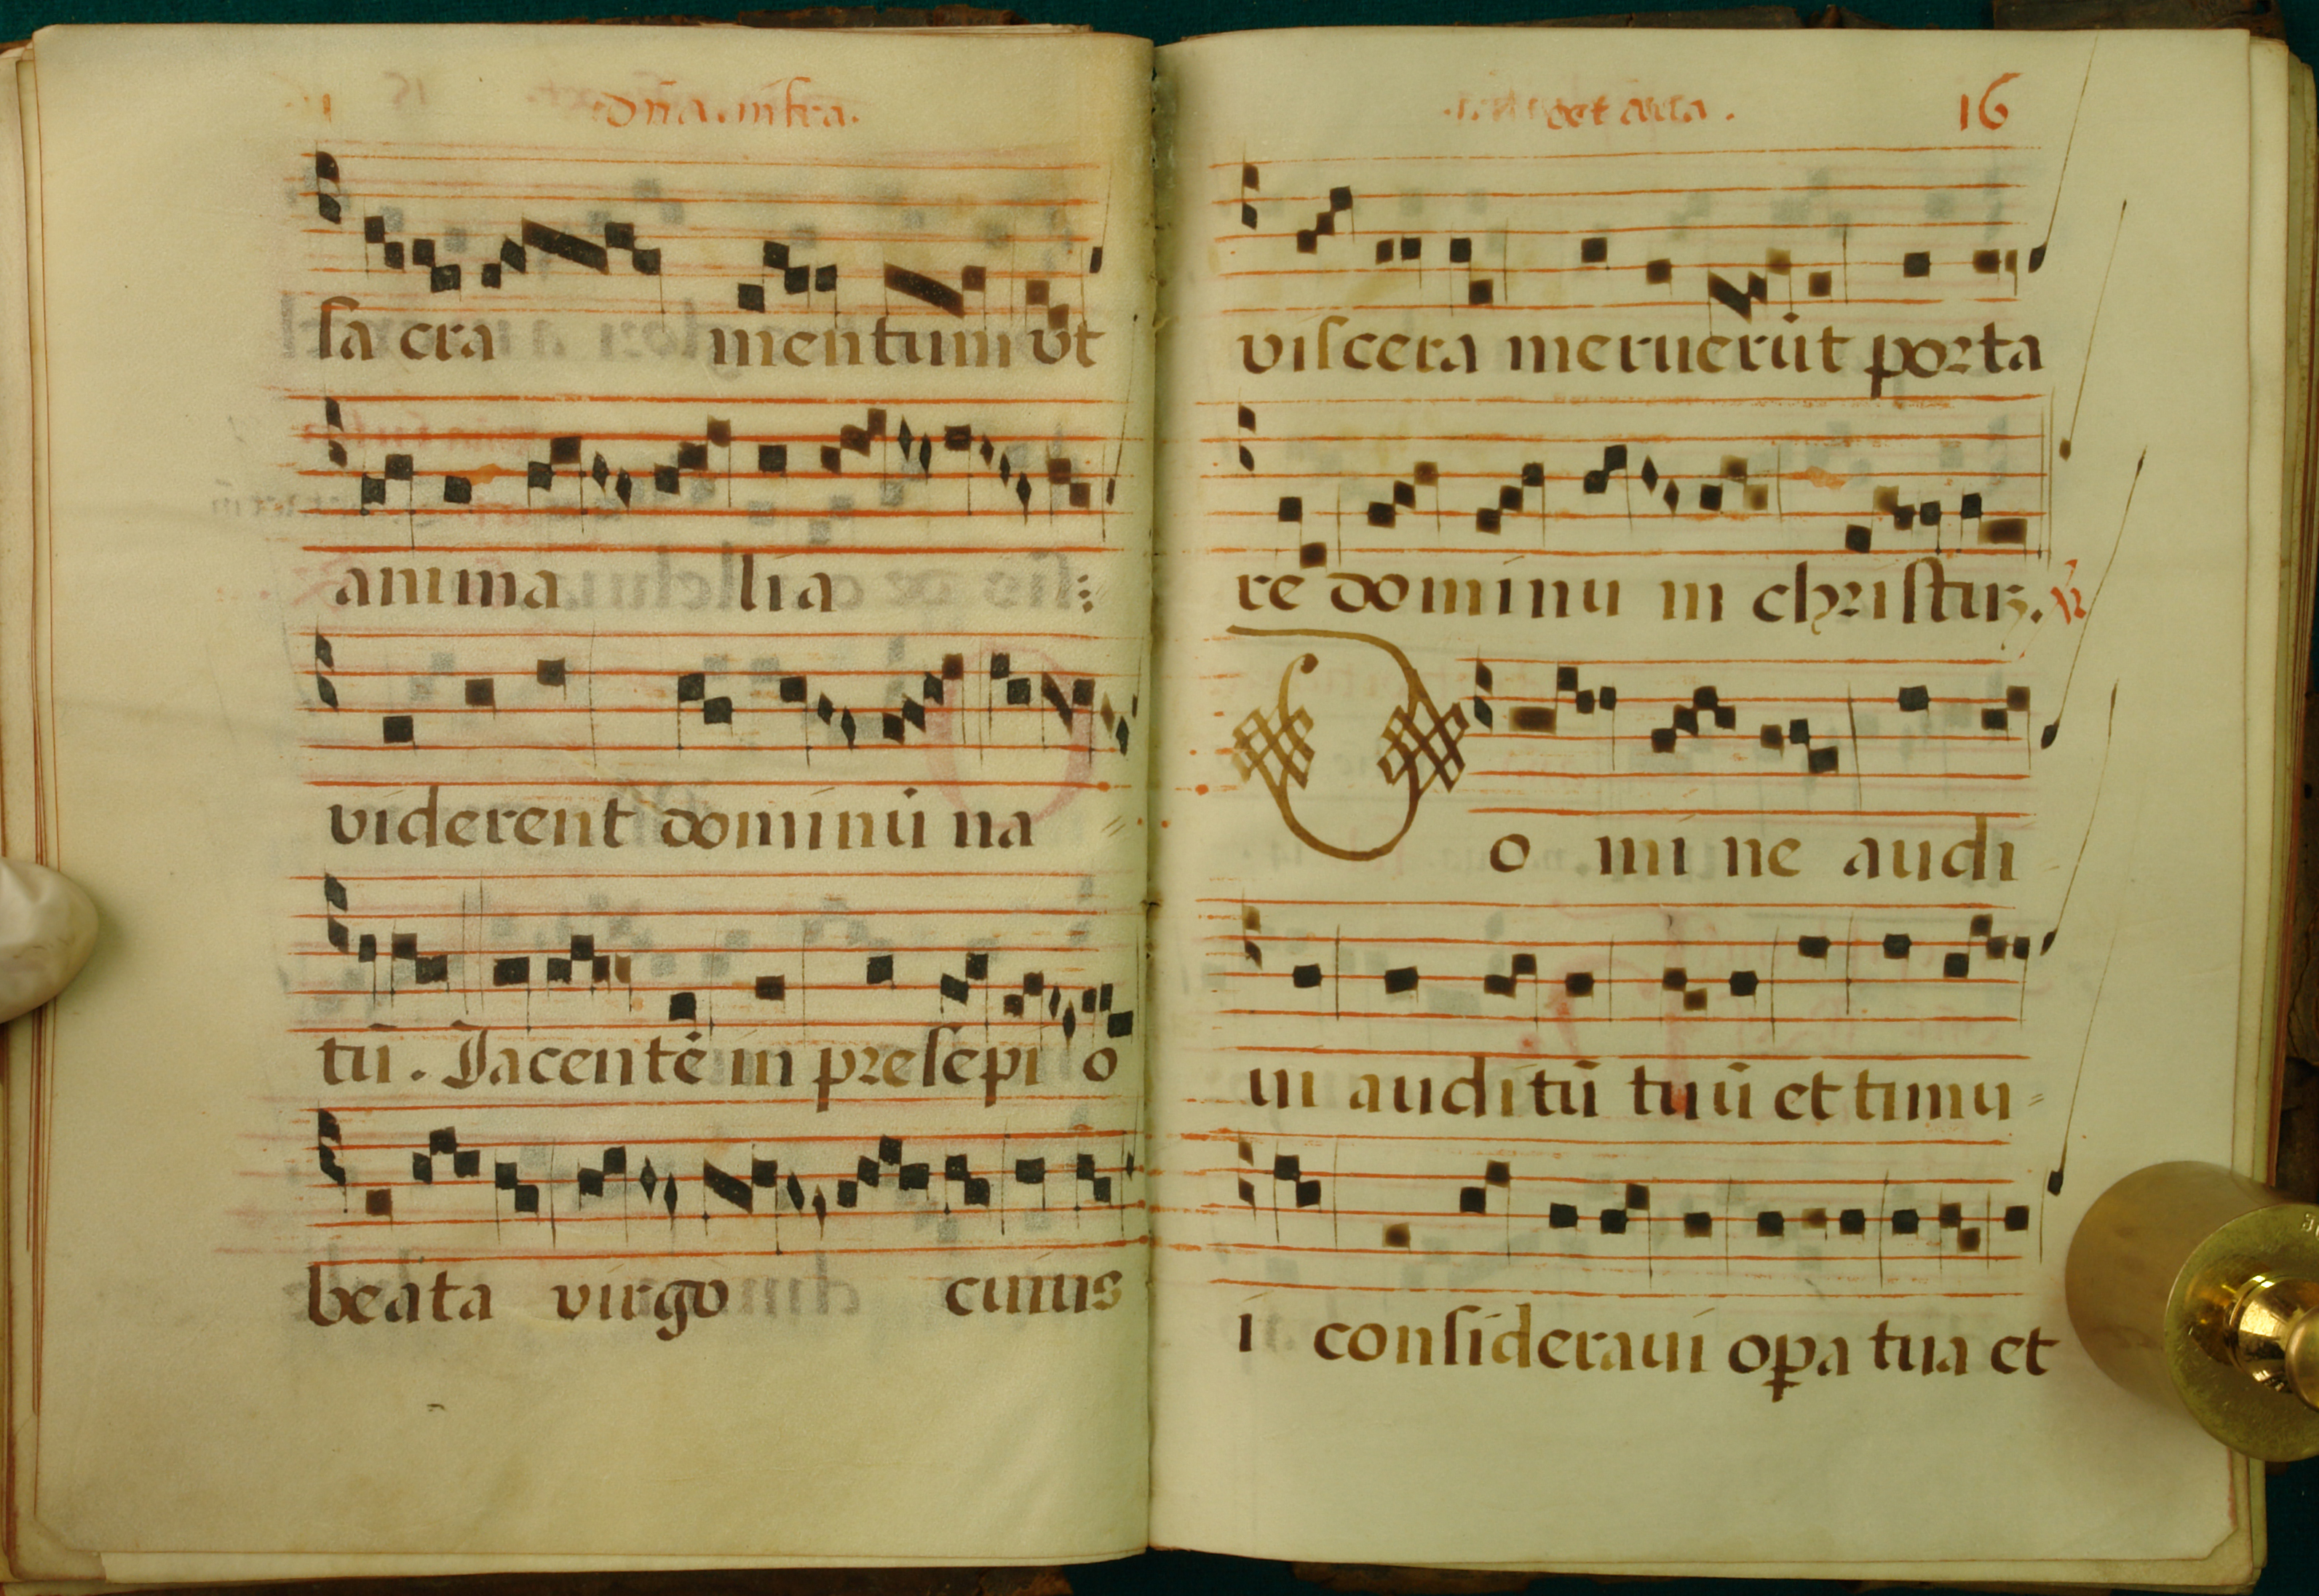 dn̄a. infra.
sa cra mentum vt
anima lia
viderent dominū na
tū. Jacentē in presepi o
beata virgo cuius
oct aua.
16
viscera meruerūt porta
re dominu m christuz. ℣
D o mi ne audi
ui auditū tuū et timu
i consideraui opa tua et